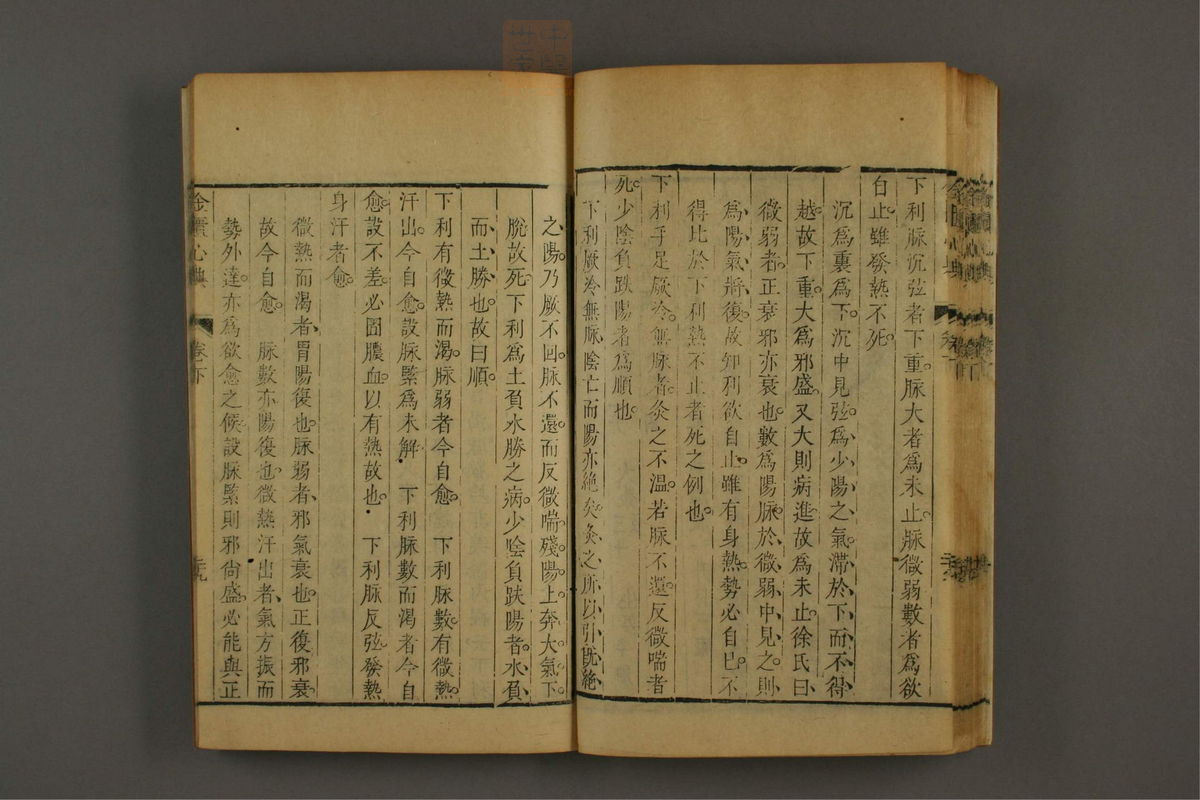 下利脉沉弦者下重脉大者爲未止脉微弱數者爲欲
自止雖發熱不死
沉爲裏爲下沉中見弦爲少陽之氣滯於下而不得
越故下重大爲邪盛又大則病進故爲未止徐氏曰
微弱者正衰邪亦衰也數爲陽脉於微弱中見之則
爲陽氣將復故知利欲自止雖有身熱勢必自已不
得比於下利熱不止者死之例也
下利手足厥冷無脉者灸之不溫若脉不還反微喘者
死少陰負趺陽者爲順也
下利厥冷無脉陰亡而陽亦絶矣灸之所以引旣絶
之陽乃厥不回脉不還而反微喘殘陽上奔大氣下
脫故死下利爲土負水勝之病少陰負趺陽者水負
而土勝也故曰順
下利有微熱而渴脉弱者今自愈 下利脉數有微熱
汗出今自愈設脉緊爲未解 下利脉數而渴者今自
愈設不差必圊膿血以有熱故也 下利脉反弦發熱
身汗者愈
微熱而渴者胃陽復也脉弱者邪氣衰也正復邪衰
故今自愈 脉數亦陽復也微熱汗出者氣方振而
勢外達亦爲欲愈之候設脉緊則邪尙盛必能與正
金匱心典
卷下
三九